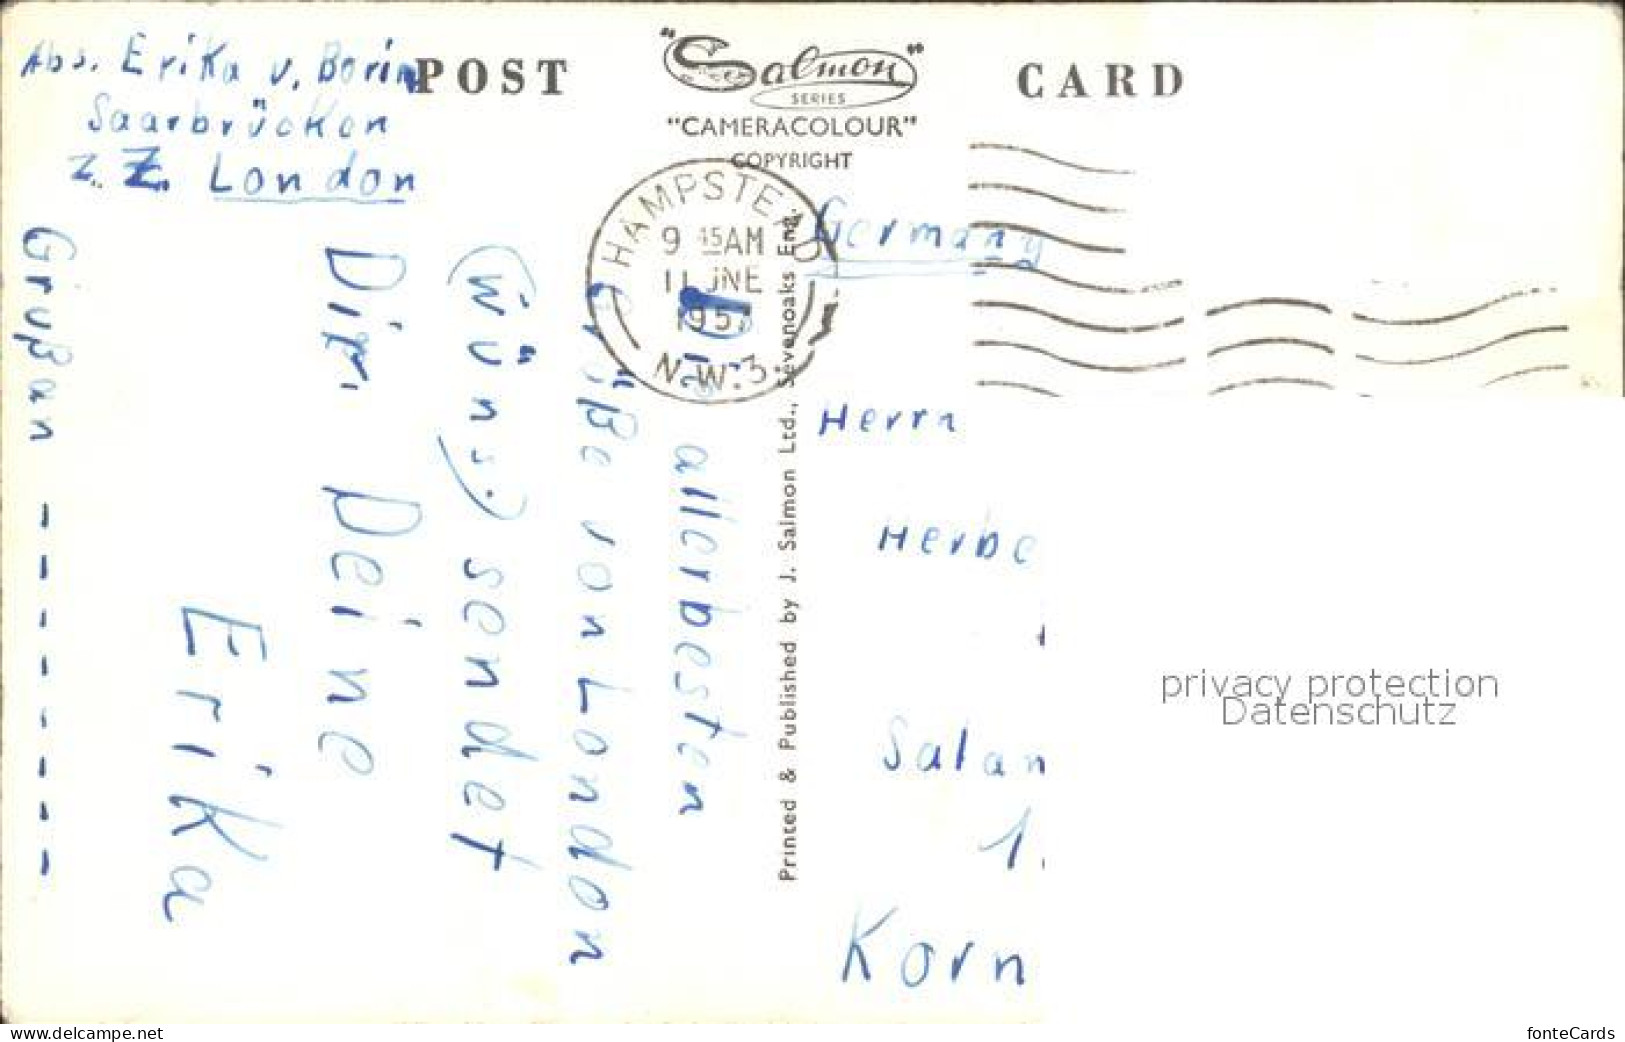 Abs. Erika v. Borin
Saarbrücken
z. Z. London
POST CARD
"Salmon"
SERIES
"CAMERACOLOUR"
COPYRIGHT
HAMPSTEAD
9 45AM
11 JNE
1957
N.W.3.
Printed & Published by J. Salmon Ltd., Sevenoaks Eng.
Die allerbesten
Grüße von London
(wüns.) sendet
Dir, Deine
Erika
Gruß an - - - - - - - -
Germany
Herrn
Herbe
Salan
1.
Korn
privacy protection
Datenschutz
www.delcampe.net
fonteCards